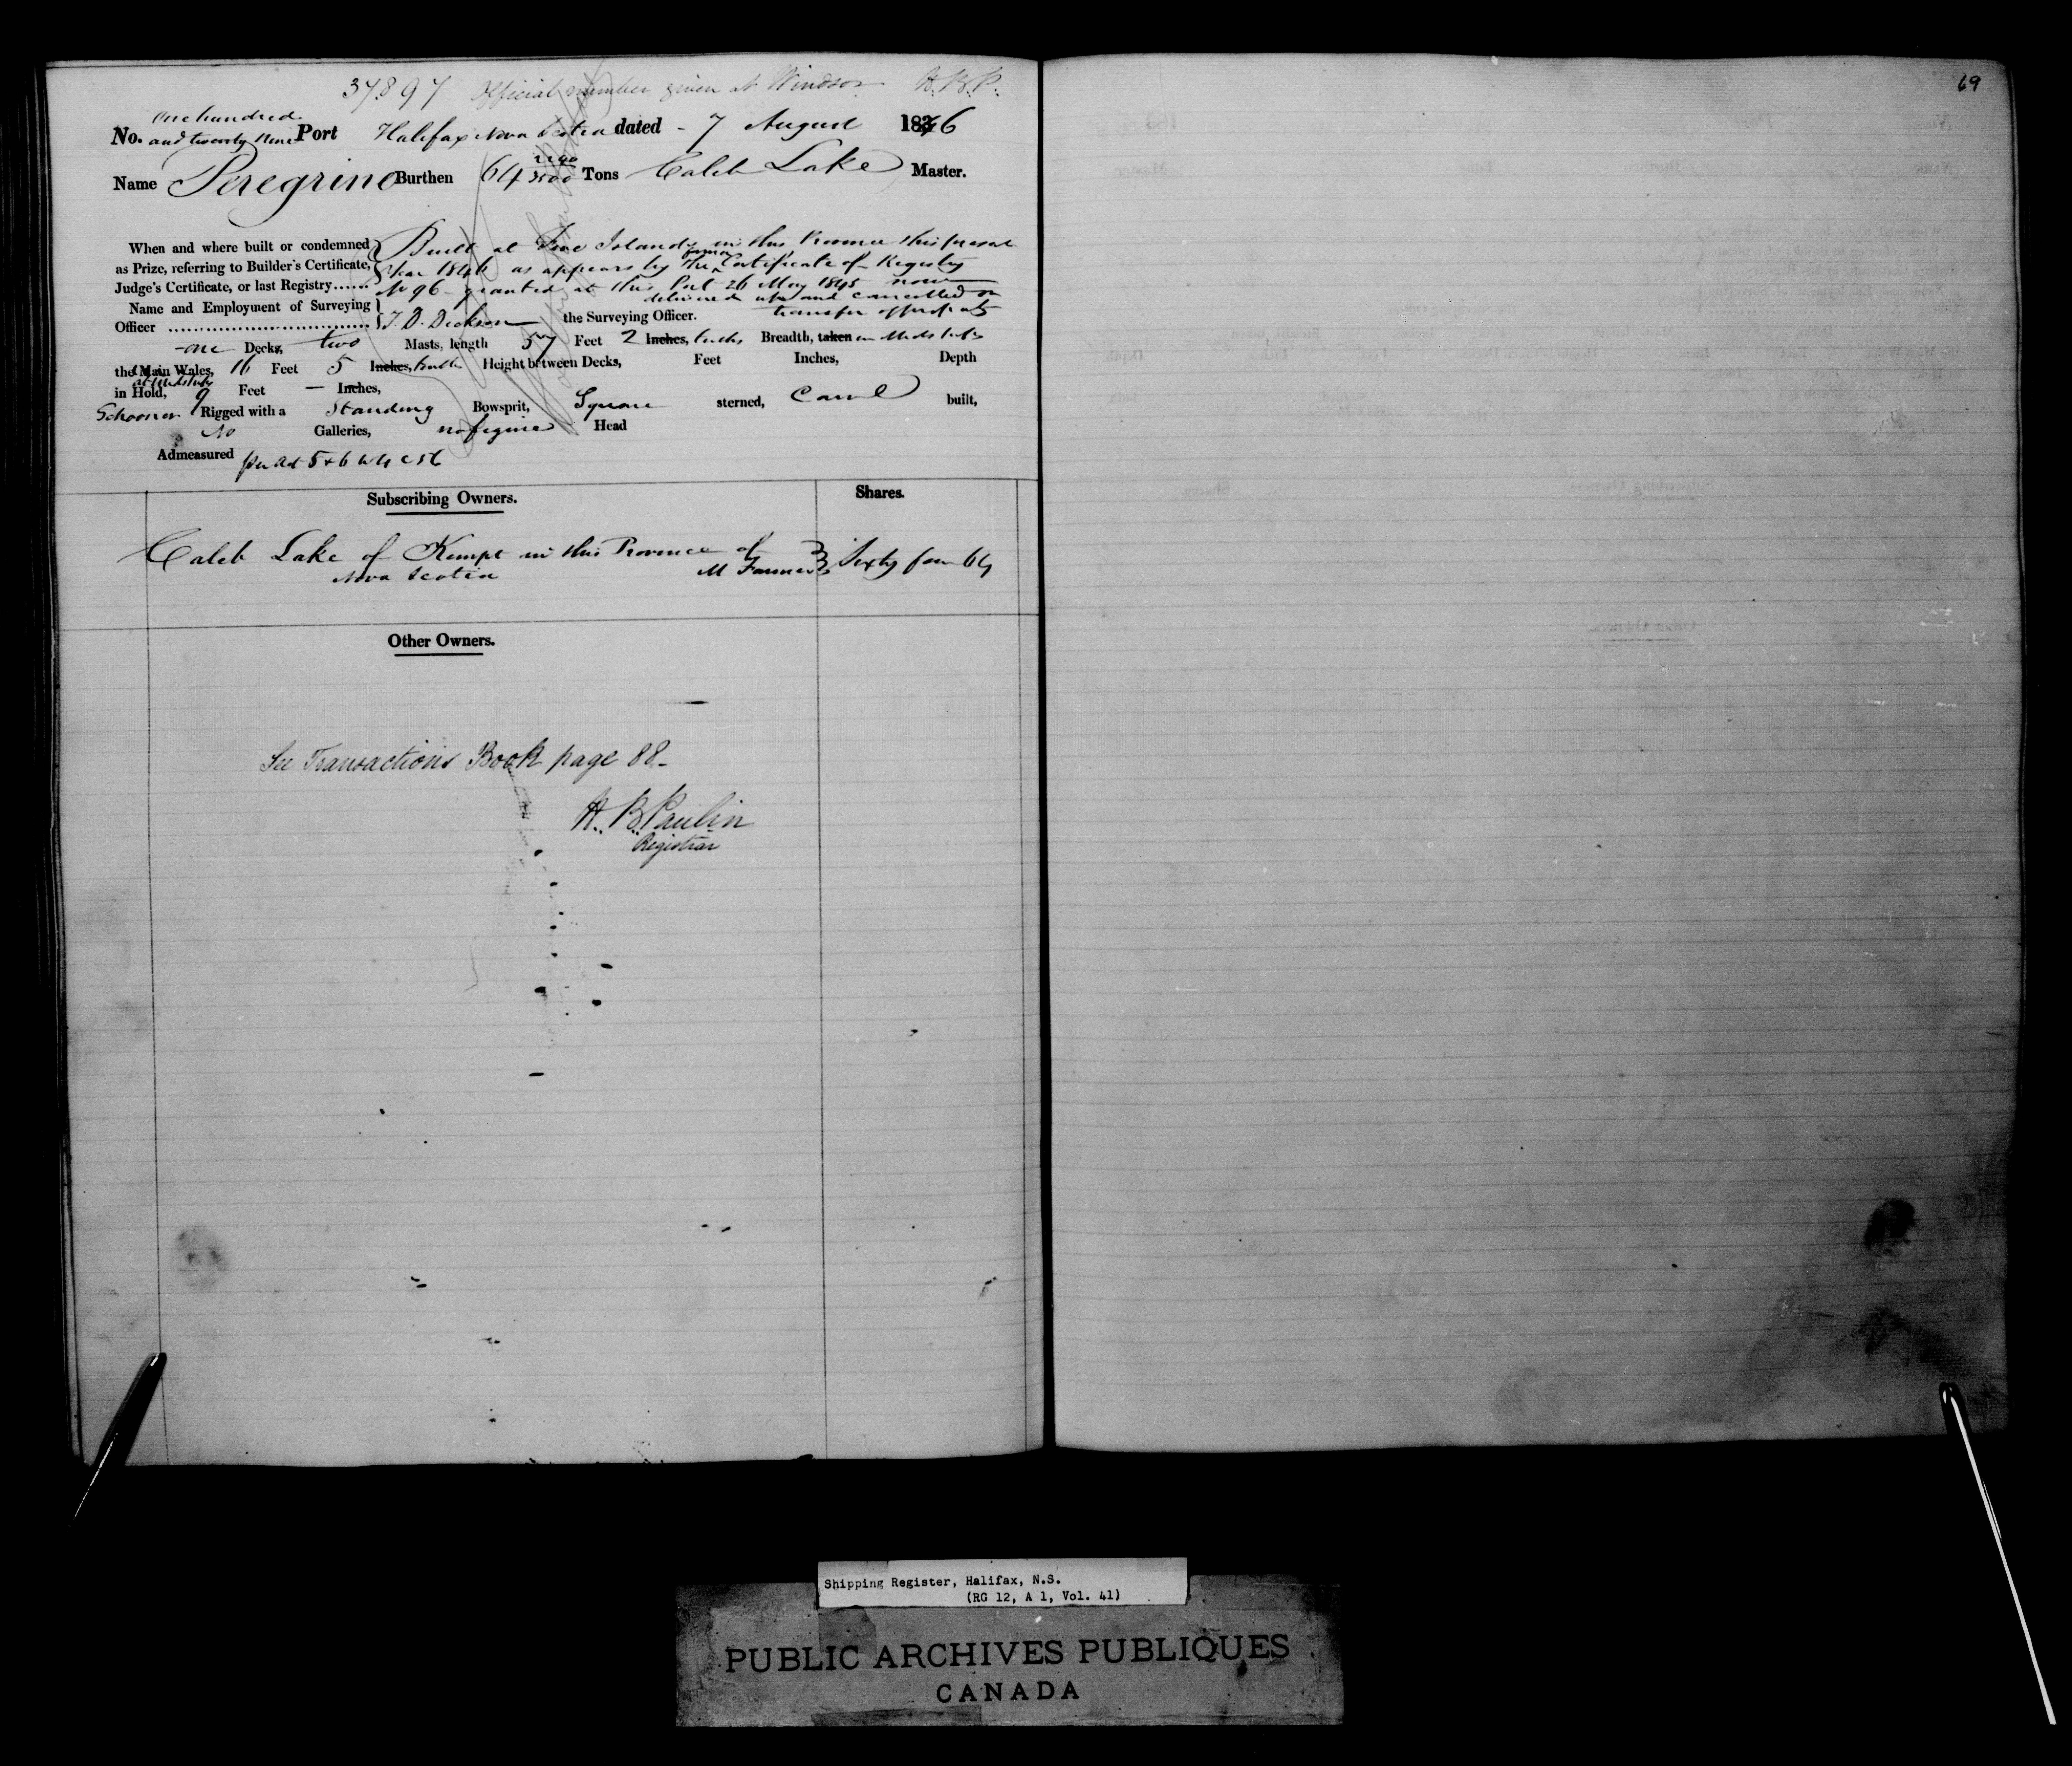 37897 Official number given at Windsor H.B.P.
69
No. One hundred and twenty Nine Port Halifax Nova Scotia dated - 7 August 1846
Name Peregrine Burthen 64 Tons Caleb Lake Master.
When and where built or condemned as Prize, referring to Builder's Certificate, Judge's Certificate, or last Registry......
Built at Five Islands in this Province this present
Year 1846 as appears by the former Certificate of Registry
No 96 granted at this Port 26 May 1845 now
delivered up and cancelled on
transfer of property
Name and Employment of Surveying Officer ................................ T. D. Dickson the Surveying Officer.
one Decks, two Masts, length 57 Feet 2 Inches, tenths Breadth, taken in Midships
the Main Wales, 16 Feet 5 Inches, tenths Height between Decks, Feet Inches, Depth
in Hold, at Midships 9 Feet — Inches,
Schooner Rigged with a Standing Bowsprit, Square sterned, Carvel built,
No Galleries, no figure Head
Admeasured per Act 5 & 6 W 4 c 56
Subscribing Owners. Shares.
Caleb Lake of Kempt in this Province of
Nova Scotia Farmer Sixty four 64
Other Owners.
See Transactions Book page 88-
H. B. Paulin
Registrar
Shipping Register, Halifax, N.S.
(RG 12, A 1, Vol. 41)
PUBLIC ARCHIVES PUBLIQUES
CANADA